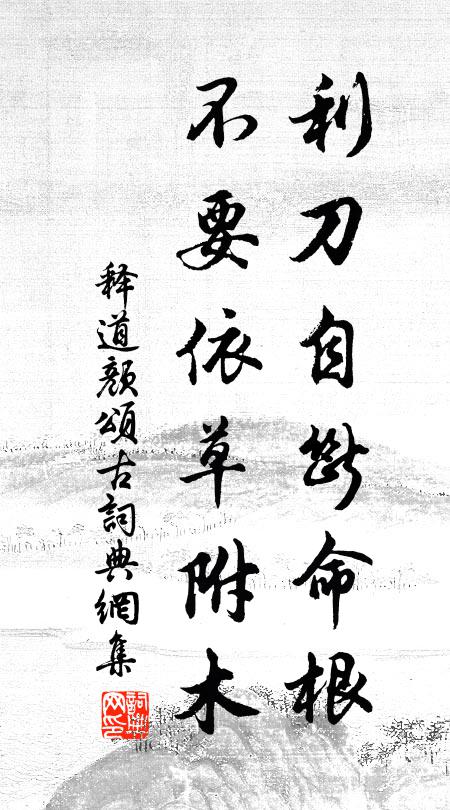 利刀自斷命根
不要依草附木
释道颜頌古詞典網集